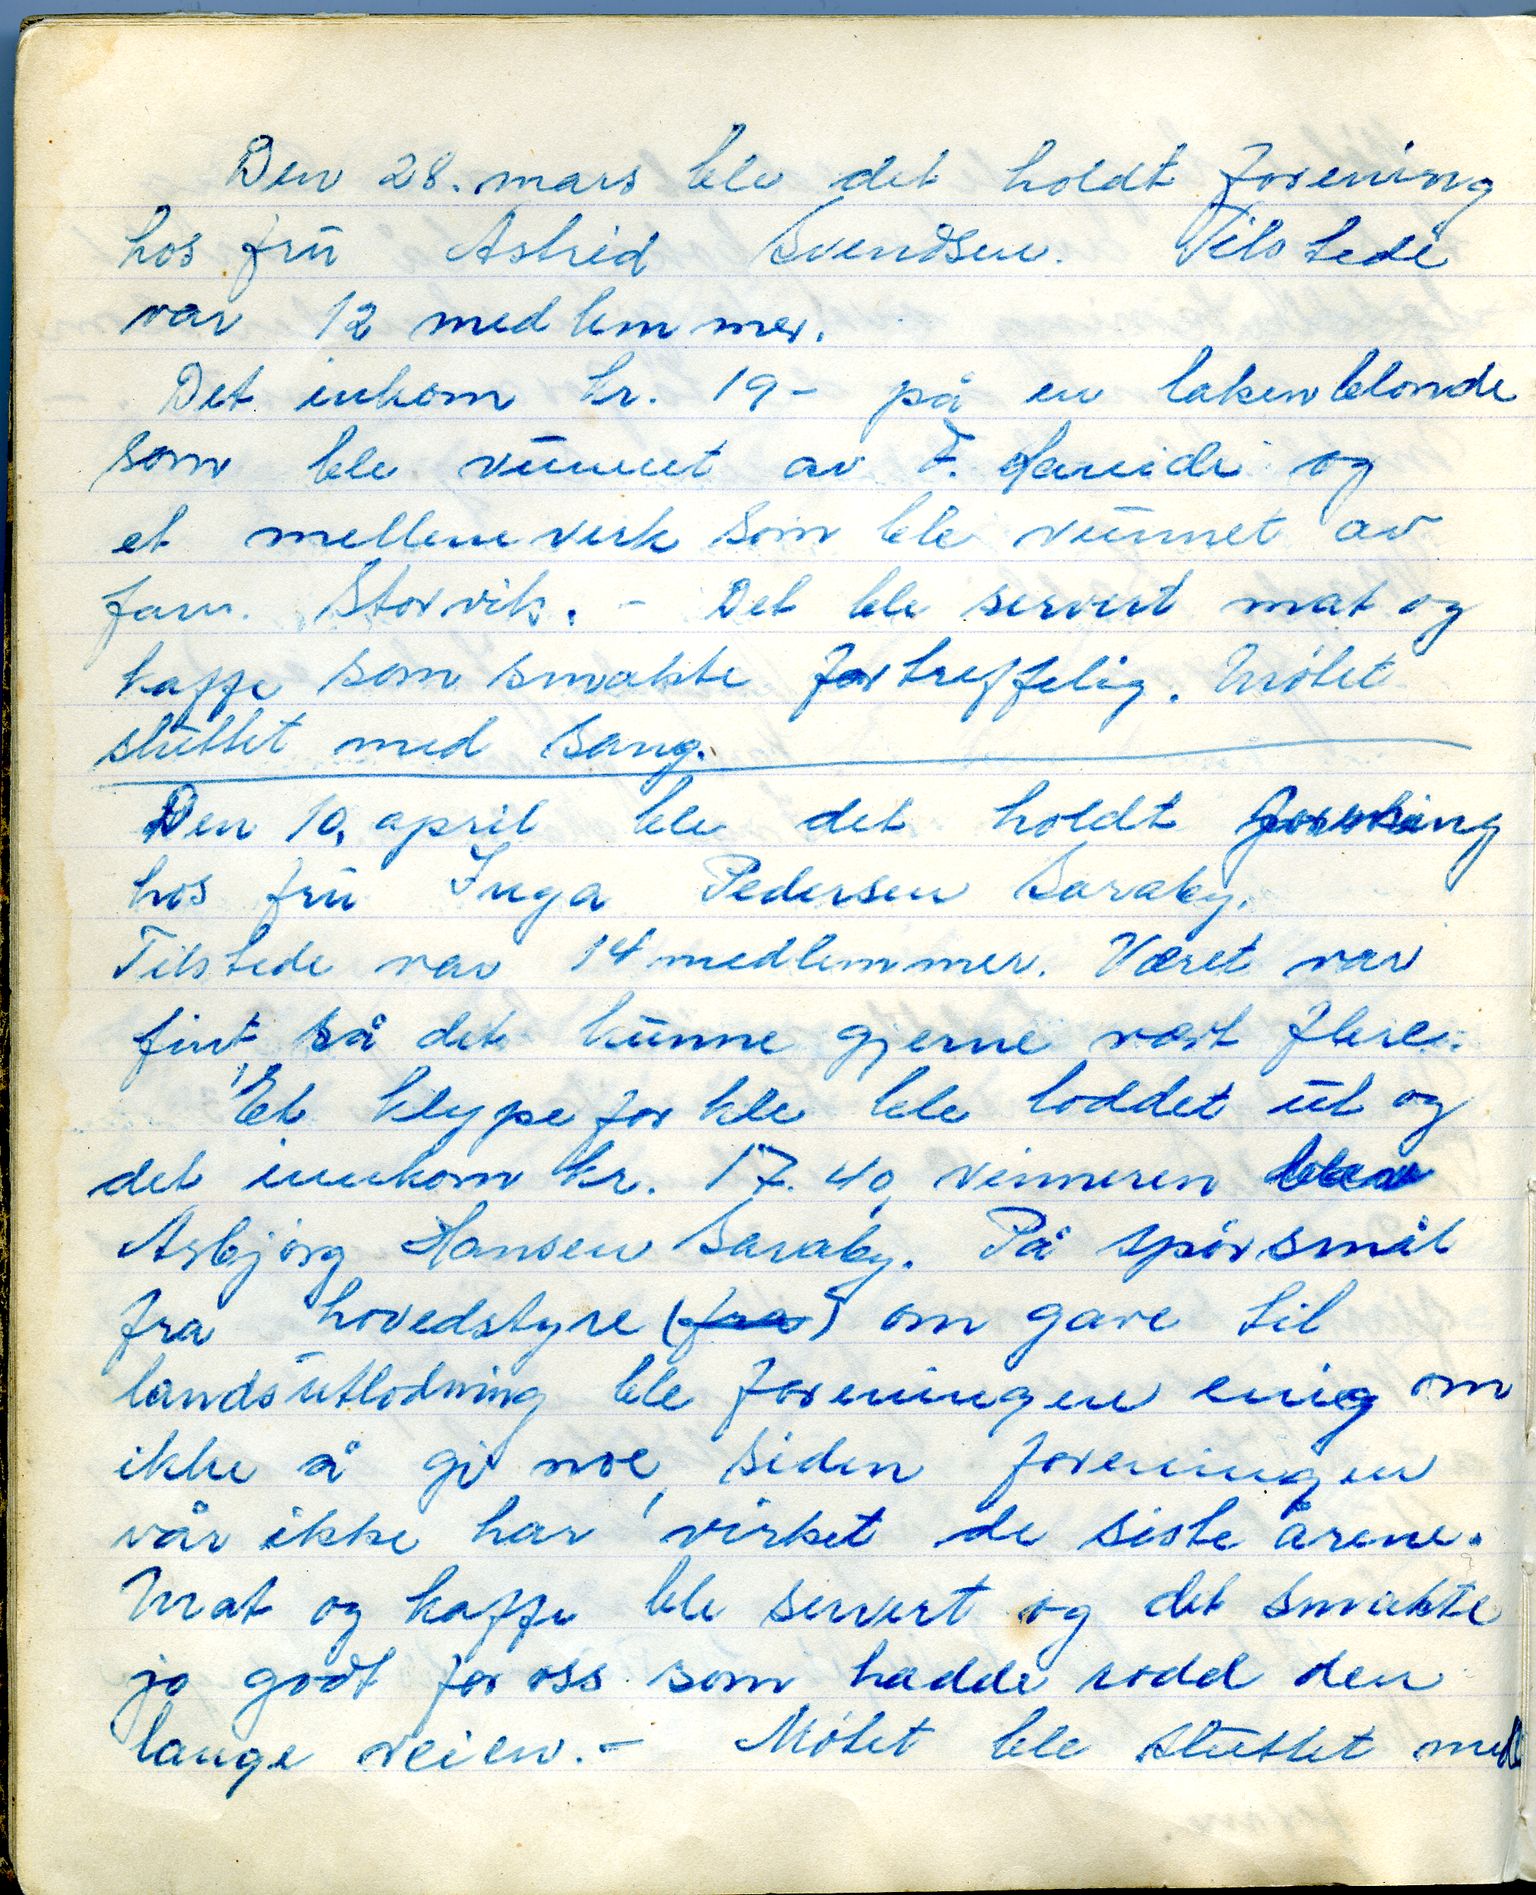 Den 28. mars ble det holdt forening
hos frū Astrid Svendsen. Tilstede
var 12 medlemmer.
Det inkom kr. 19- på en lakenblonde
som ble vūnnet av F. Hareide og
et mellemverk som ble vūnnet av
fam. Storvik. - Det ble servert mat og
kaffe som smakte fortreffelig. Møtet
slūttet med sang.
Den 10. april ble det holdt forening
hos frū Inga Pedersen Saraby.
Tilstede var 14 medlemmer. Været var
fint, så det kūnne gjerne vært flere.
Et klypeforkle ble loddet ūt og
det innkom kr. 17.40, vinneren blev
Asbjørg Hansen Saraby. På spørsmål
fra hovedstyre (fra) om gave til
landsūtlodning ble foreningen enig om
ikke å gi noe, siden foreningen
vår ikke har virket de siste årene.
Mat og kaffe ble servert og det smakte
jo godt for oss som hadde rodd den
lange veien. - Møtet ble slūttet med